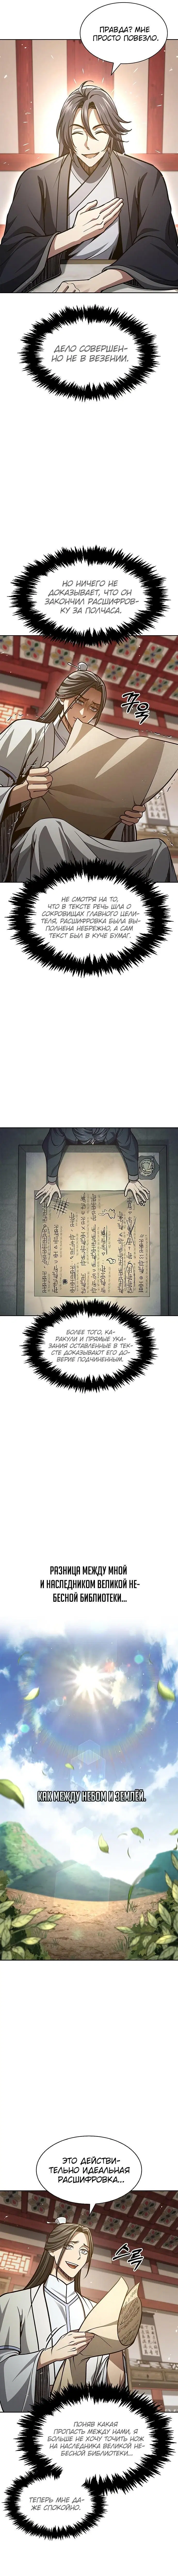 ПРАВДА? МНЕ
ПРОСТО ПОВЕЗЛО.
ДЕЛО СОВЕРШЕН-
НО НЕ В ВЕЗЕНИИ.
НО НИЧЕГО НЕ
ДОКАЗЫВАЕТ, ЧТО ОН
ЗАКОНЧИЛ РАСШИФРОВ-
КУ ЗА ПОЛЧАСА.
НЕ СМОТРЯ НА ТО,
ЧТО В ТЕКСТЕ РЕЧЬ ШЛА О
СОКРОВИЩАХ ГЛАВНОГО ЦЕЛИ-
ТЕЛЯ, РАСШИФРОВКА БЫЛА ВЫ-
ПОЛНЕНА НЕБРЕЖНО, А САМ
ТЕКСТ БЫЛ В КУЧЕ БУМАГ.
БОЛЕЕ ТОГО, КА-
РАКУЛИ И ПРЯМЫЕ УКА-
ЗАНИЯ ОСТАВЛЕННЫЕ В ТЕК-
СТЕ ДОКАЗЫВАЮТ ЕГО ДО-
ВЕРИЕ ПОДЧИНЕННЫМ.
РАЗНИЦА МЕЖДУ МНОЙ
И НАСЛЕДНИКОМ ВЕЛИКОЙ НЕ-
БЕСНОЙ БИБЛИОТЕКИ...
КАК МЕЖДУ НЕБОМ И ЗЕМЛЁЙ.
ЭТО ДЕЙСТВИ-
ТЕЛЬНО ИДЕАЛЬНАЯ
РАСШИФРОВКА...
스륵
ПОНЯВ КАКАЯ
ПРОПАСТЬ МЕЖДУ НАМИ, Я
БОЛЬШЕ НЕ ХОЧУ ТОЧИТЬ НОЖ
НА НАСЛЕДНИКА ВЕЛИКОЙ НЕ-
БЕСНОЙ БИБЛИОТЕКИ...
ТЕПЕРЬ МНЕ ДА-
ЖЕ СПОКОЙНО.